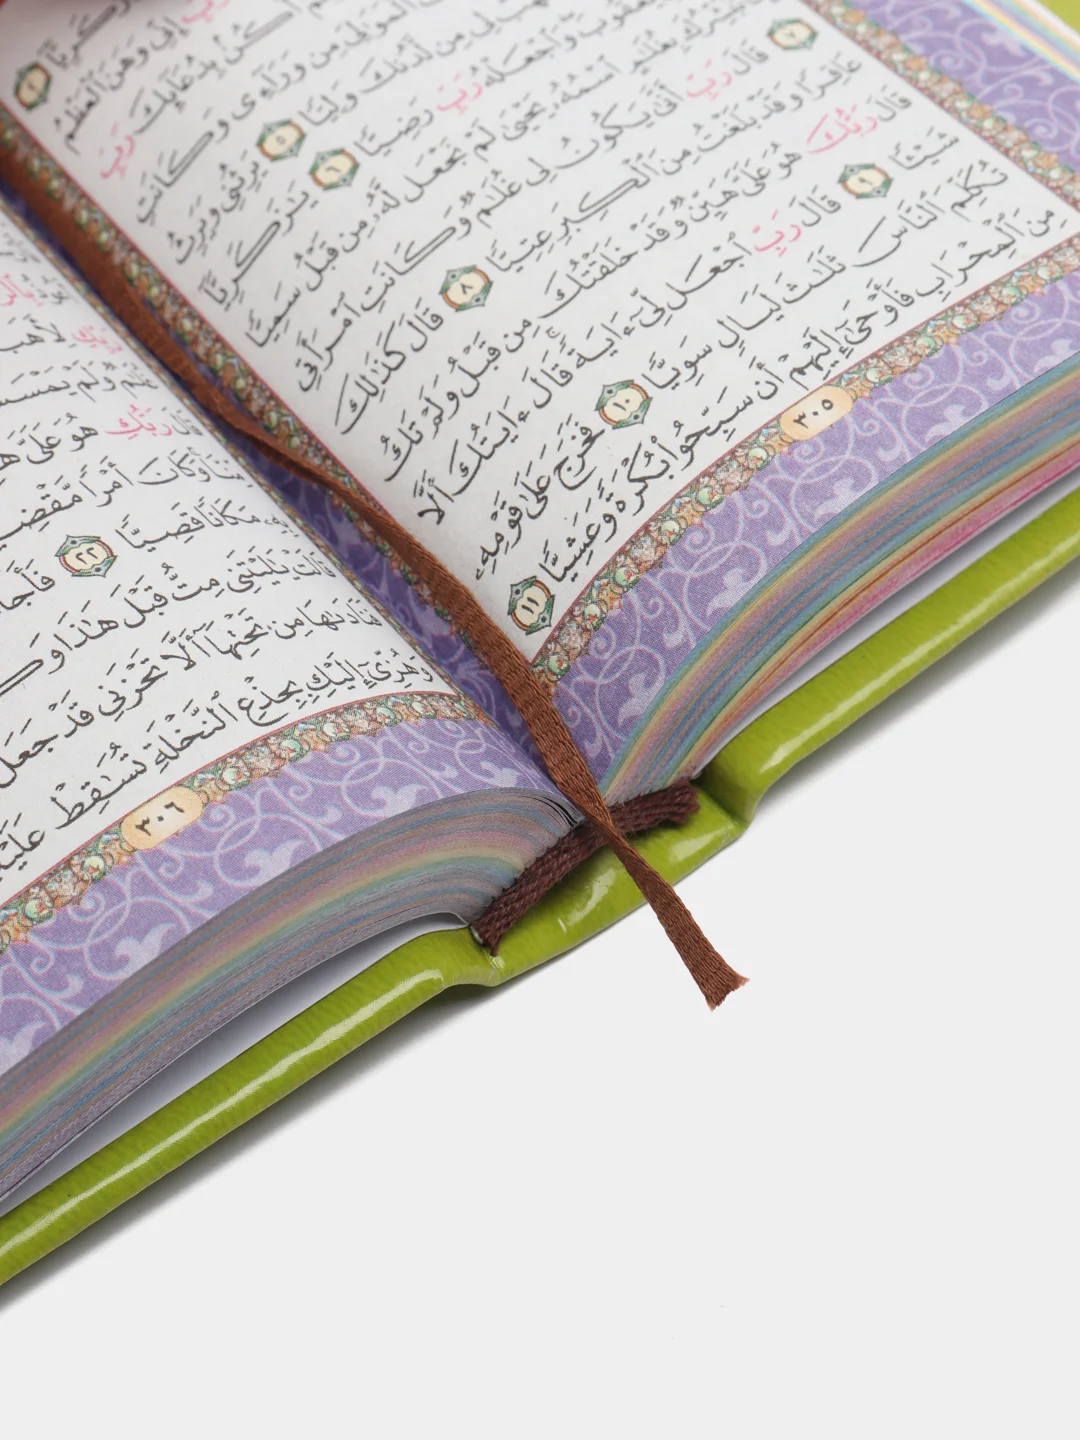 زَكَرِيَّآ ٢
رَبِّ إِنِّى وَهَنَ ٱلْعَظْمُ
أَكُنۢ بِدُعَآئِكَ رَبِّ
ٱلْمَوَٰلِىَ مِن وَرَآءِى وَكَانَتِ
لِى مِن لَّدُنكَ وَلِيًّا ٥ يَرِثُنِى وَيَرِثُ
يَعْقُوبَ وَٱجْعَلْهُ رَبِّ رَضِيًّا ٦ يَٰزَكَرِيَّآ
نُبَشِّرُكَ بِغُلَٰمٍ ٱسْمُهُۥ يَحْيَىٰ لَمْ نَجْعَل لَّهُۥ مِن قَبْلُ سَمِيًّا
٧ قَالَ رَبِّ أَنَّىٰ يَكُونُ لِى غُلَٰمٌ وَكَانَتِ ٱمْرَأَتِى
عَاقِرًا وَقَدْ بَلَغْتُ مِنَ ٱلْكِبَرِ عِتِيًّا ٨ قَالَ كَذَٰلِكَ
قَالَ رَبُّكَ هُوَ عَلَىَّ هَيِّنٌ وَقَدْ خَلَقْتُكَ مِن قَبْلُ وَلَمْ تَكُ
شَيْـًٔا ٩ قَالَ رَبِّ ٱجْعَل لِّىٓ ءَايَةً قَالَ ءَايَتُكَ أَلَّا
تُكَلِّمَ ٱلنَّاسَ ثَلَٰثَ لَيَالٍ سَوِيًّا ١٠ فَخَرَجَ عَلَىٰ قَوْمِهِۦ
مِنَ ٱلْمِحْرَابِ فَأَوْحَىٰٓ إِلَيْهِمْ أَن سَبِّحُوا۟ بُكْرَةً وَعَشِيًّا ١١
٣٠٥
رَبِّكِ لِأَهَبَ
غُلَٰمٌ وَلَمْ يَمْسَسْ
قَالَ رَبُّكِ هُوَ عَلَىَّ
وَكَانَ أَمْرًا مَّقْضِ
بِهِۦ مَكَانًا قَصِيًّا ٢٢ فَأَجَا
قَالَتْ يَٰلَيْتَنِى مِتُّ قَبْلَ هَٰذَا وَ
فَنَادَىٰهَا مِن تَحْتِهَآ أَلَّا تَحْزَنِى قَدْ جَعَلَ
وَهُزِّىٓ إِلَيْكِ بِجِذْعِ ٱلنَّخْلَةِ تُسَٰقِطْ عَلَيْ
٣٠٦